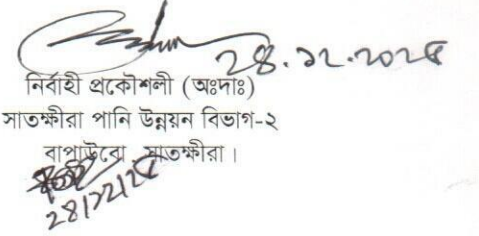 ২৪.১২.২০২৫
নির্বাহী প্রকৌশলী (অঃদাঃ)
সাতক্ষীরা পানি উন্নয়ন বিভাগ-২
বাপাউবো, সাতক্ষীরা।
২৪/১২/২৫